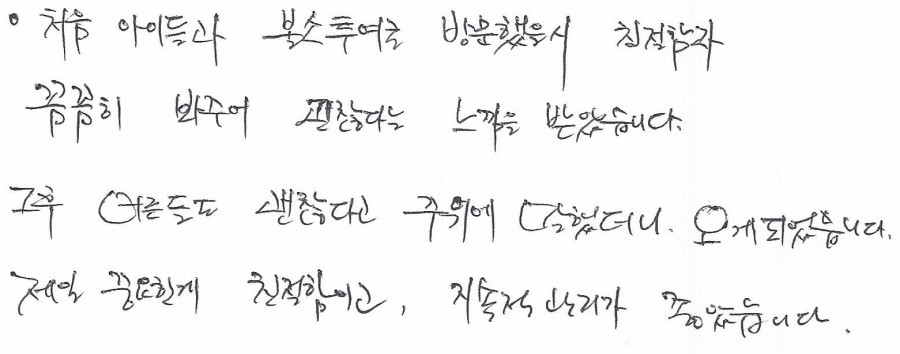 • 처음 아이들과 불소투여로 방문했을시 친절함과
꼼꼼히 봐주어 괜찮다는 느낌을 받았습니다.
그후 어른들도 괜찮다고 주위에 말했더니. 오게되었습니다.
제일 중요한게 친절함이고, 지속적 관리가 좋았습니다.